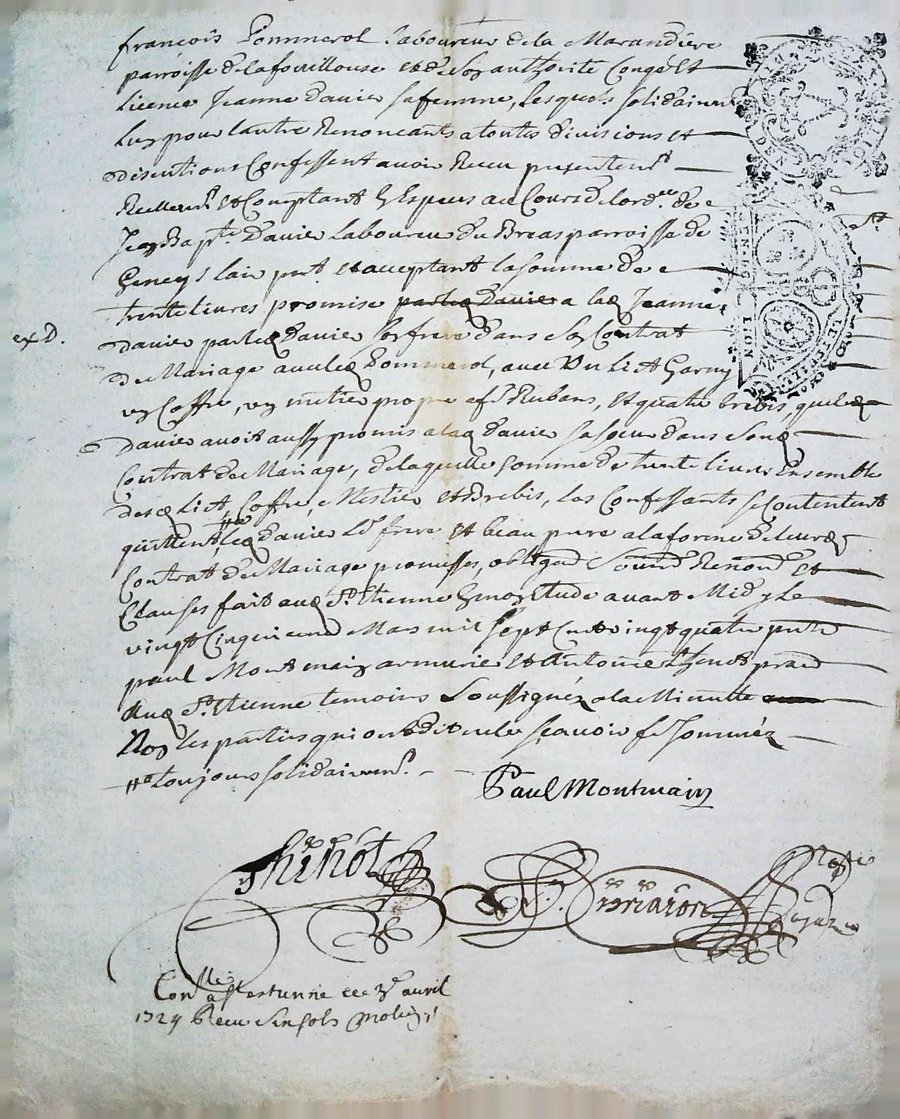 françois Pommerol Laboureur de la Marandiere
parroisse de lafouillouse et de Son authorite Congé Et
Licence Jeanne Davier sa femme, Lesquels solidairemt
Lun pour lautre Renonceants a toutes divisions et
discutions Confessent avoir Receu presentemt
Reellemt Et Comptant En Especes au Cours de lordce de
Jean Bapte Davier Laboureur du Breas parroisse de
Geneys lair pnt et acceptant la somme de
trente livres promise a lad Jeanne
exd.
davier par led davier son frere dans son Contrat
de Mariage avec led Pommerol, avec Un Lict Garny
un Coffre, un metier propre a fe Rubans, et quatre brebis, que led
davier avoit aussy promis a lad davier sa soeur dans Sond
Contrat de Mariage, de laquelle somme de trente livres Ensemble
desd Lict, Coffre, Mestier et Brebis, Les Confessants se Contentent
quittent led davier Ld frere et beau frere a la forme de leurd
Contrat de Mariage promesses, obligaon Soumd Renond Et
Clauses fait aud St Etienne En nox Etude avant Midy Le
vingt Cinquieme Mars mil sept Cent vingt quatre pnts
paul Montmain armurier et antoine prad
dud St Etienne temoins Soussignéz a la Minutte
Non les parties qui ont dit ne le scavoir de ce Sommez
toujours solidairemt.
Paul Montmain
Thinot
Conllé a St estienne ce 3e avril
1724 Receu Six sols